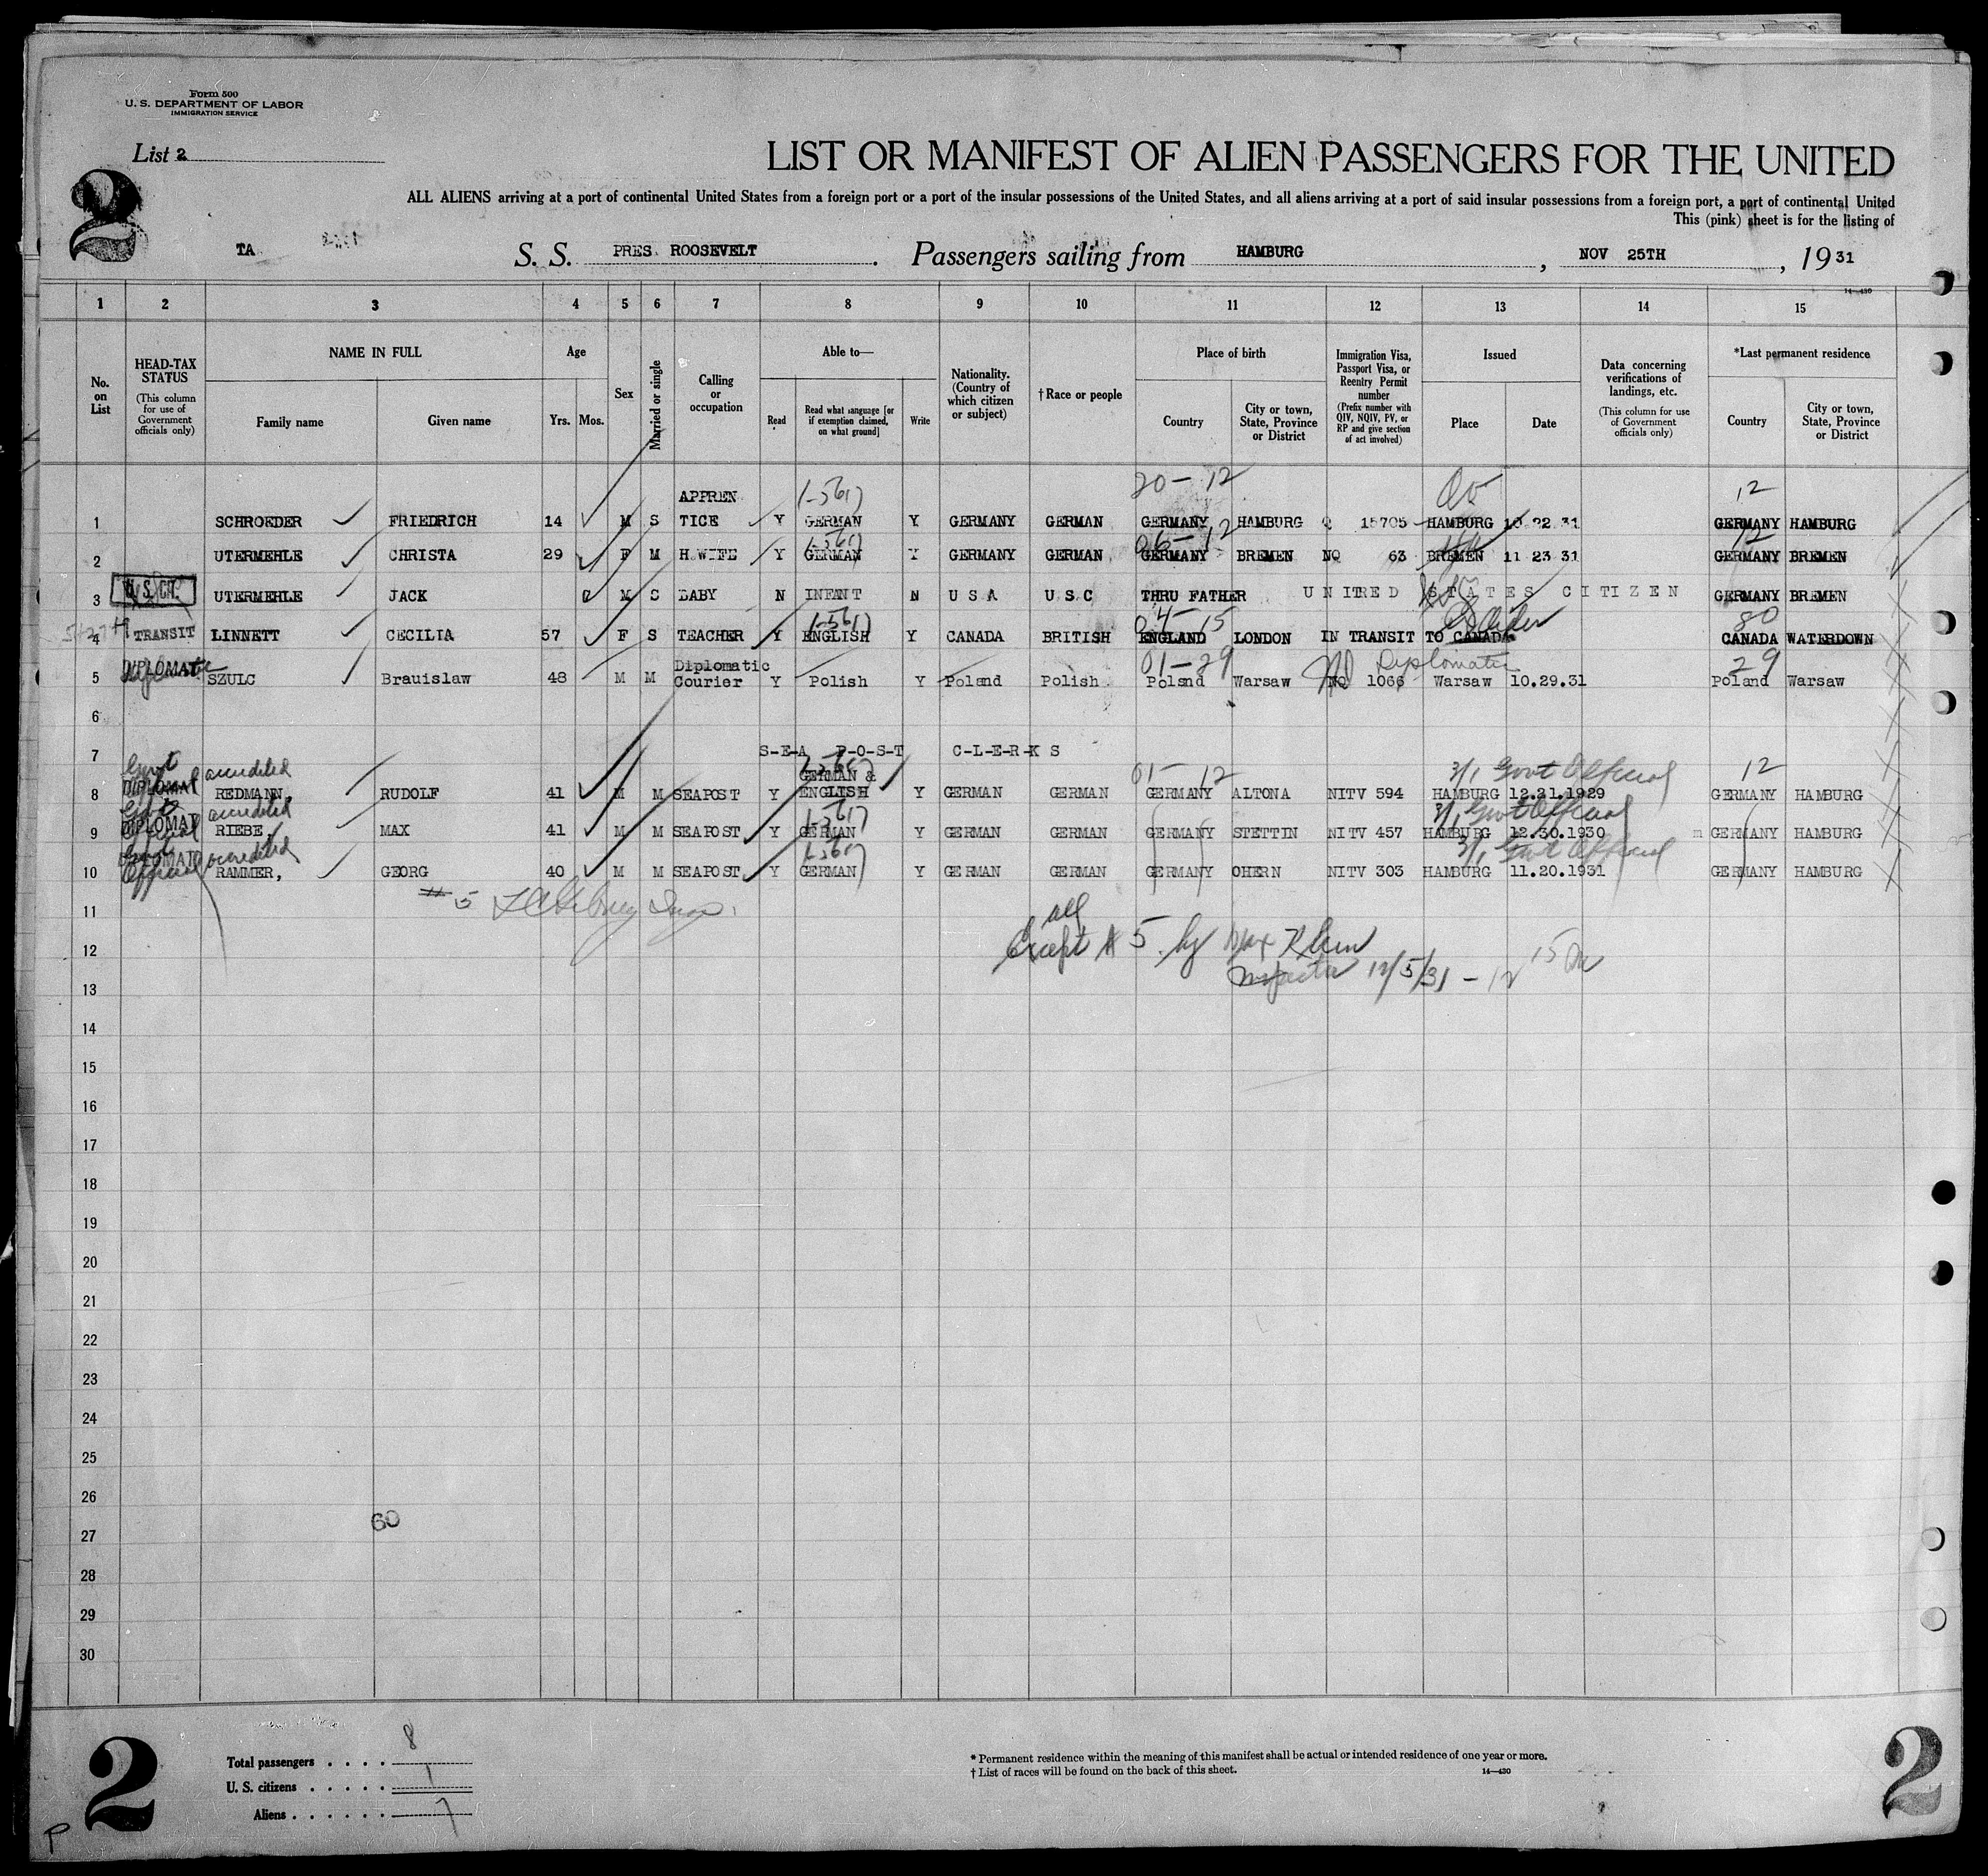 Form 500
U. S. DEPARTMENT OF LABOR
IMMIGRATION SERVICE
List 2
2
LIST OR MANIFEST OF ALIEN PASSENGERS FOR THE UNITED
ALL ALIENS arriving at a port of continental United States from a foreign port or a port of the insular possessions of the United States, and all aliens arriving at a port of said insular possessions from a foreign port, a port of continental United
This (pink) sheet is for the listing of
TA S. S. PRES. ROOSEVELT. Passengers sailing from HAMBURG, NOV 25TH, 19 31
14—430
1 2 3 4 5 6 7 8 9 10 11 12 13 14 15
No. on List
HEAD-TAX STATUS (This column for use of Government officials only)
NAME IN FULL
Family name Given name
Age
Yrs. Mos.
Sex
Married or single
Calling or occupation
Able to—
Read Read what language [or if exemption claimed, on what ground] Write
Nationality. (Country of which citizen or subject)
† Race or people
Place of birth
Country City or town, State, Province or District
Immigration Visa, Passport Visa, or Reentry Permit number (Prefix number with QIV, NQIV, PV, or RP and give section of act involved)
Issued
Place Date
Data concerning verifications of landings, etc. (This column for use of Government officials only)
*Last permanent residence
Country City or town, State, Province or District
20-12 12
1 SCHROEDER FRIEDRICH 14 M S APPREN TICE Y GERMAN Y GERMANY GERMAN GERMANY HAMBURG Q 15705 HAMBURG 10 22 31 GERMANY HAMBURG
06-12 12
2 UTERMEHLE CHRISTA 29 F M H.WIFE Y GERMAN Y GERMANY GERMAN GERMANY BREMEN NQ 63 BREMEN 11 23 31 GERMANY BREMEN
3 U.S.CIT. UTERMEHLE JACK M S BABY N INFANT N U S A U S C THRU FATHER UNITED STATES CITIZEN GERMANY BREMEN
04-15 80
4 TRANSIT LINNETT CECILIA 57 F S TEACHER Y ENGLISH Y CANADA BRITISH ENGLAND LONDON IN TRANSIT TO CANADA CANADA WATERDOWN
01-29 Diplomatic 29
5 DIPLOMAT SZULC Brauislaw 48 M M Diplomatic Courier Y Polish Y Poland Polish Poland Warsaw NQ 1066 Warsaw 10.29.31 Poland Warsaw
6
7 S-E-A P-O-S-T C-L-E-R-K S
Govt Official accredited 01-12 3/1 Govt Official 12
8 DIPLOMAT REDMANN, RUDOLF 41 M M SEAPOST Y GERMAN & ENGLISH Y GERMAN GERMAN GERMANY ALTONA NITV 594 HAMBURG 12.21.1929 GERMANY HAMBURG
Govt Official accredited 3/1 Govt Official
9 DIPLOMAT RIEBE, MAX 41 M M SEAPOST Y GERMAN Y GERMAN GERMAN GERMANY STETTIN NITV 457 HAMBURG 12.30.1930 GERMANY HAMBURG
Govt Official accredited 3/1 Govt Official
10 DIPLOMAT RAMMER, GEORG 40 M M SEAPOST Y GERMAN Y GERMAN GERMAN GERMANY OHERN NITV 303 HAMBURG 11.20.1931 GERMANY HAMBURG
# 5
11
all
12 Except # 5 by Max Klein
Inspector 12/5/31 - 12
13
14
15
16
17
18
19
20
21
22
23
24
25
26
60
27
28
29
30
2
Total passengers . . . . 8
U. S. citizens . . . . . 1
Aliens . . . . . . 7
* Permanent residence within the meaning of this manifest shall be actual or intended residence of one year or more.
† List of races will be found on the back of this sheet. 14—430
2
P